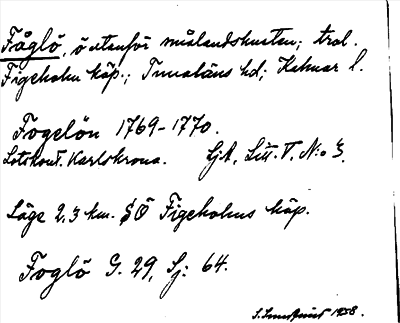 Fåglö, ö utanför smålandskusten; trol.
Figeholm köp.; Tunaläns hd; Kalmar l.
Fogelön 1769-1770.
Lotskont. Karlskrona. SjA, Litt. V, N:o 3.
Läge 2.3 km. SÖ Figeholms köp.
Foglö G. 29, Sj: 64.
1958.